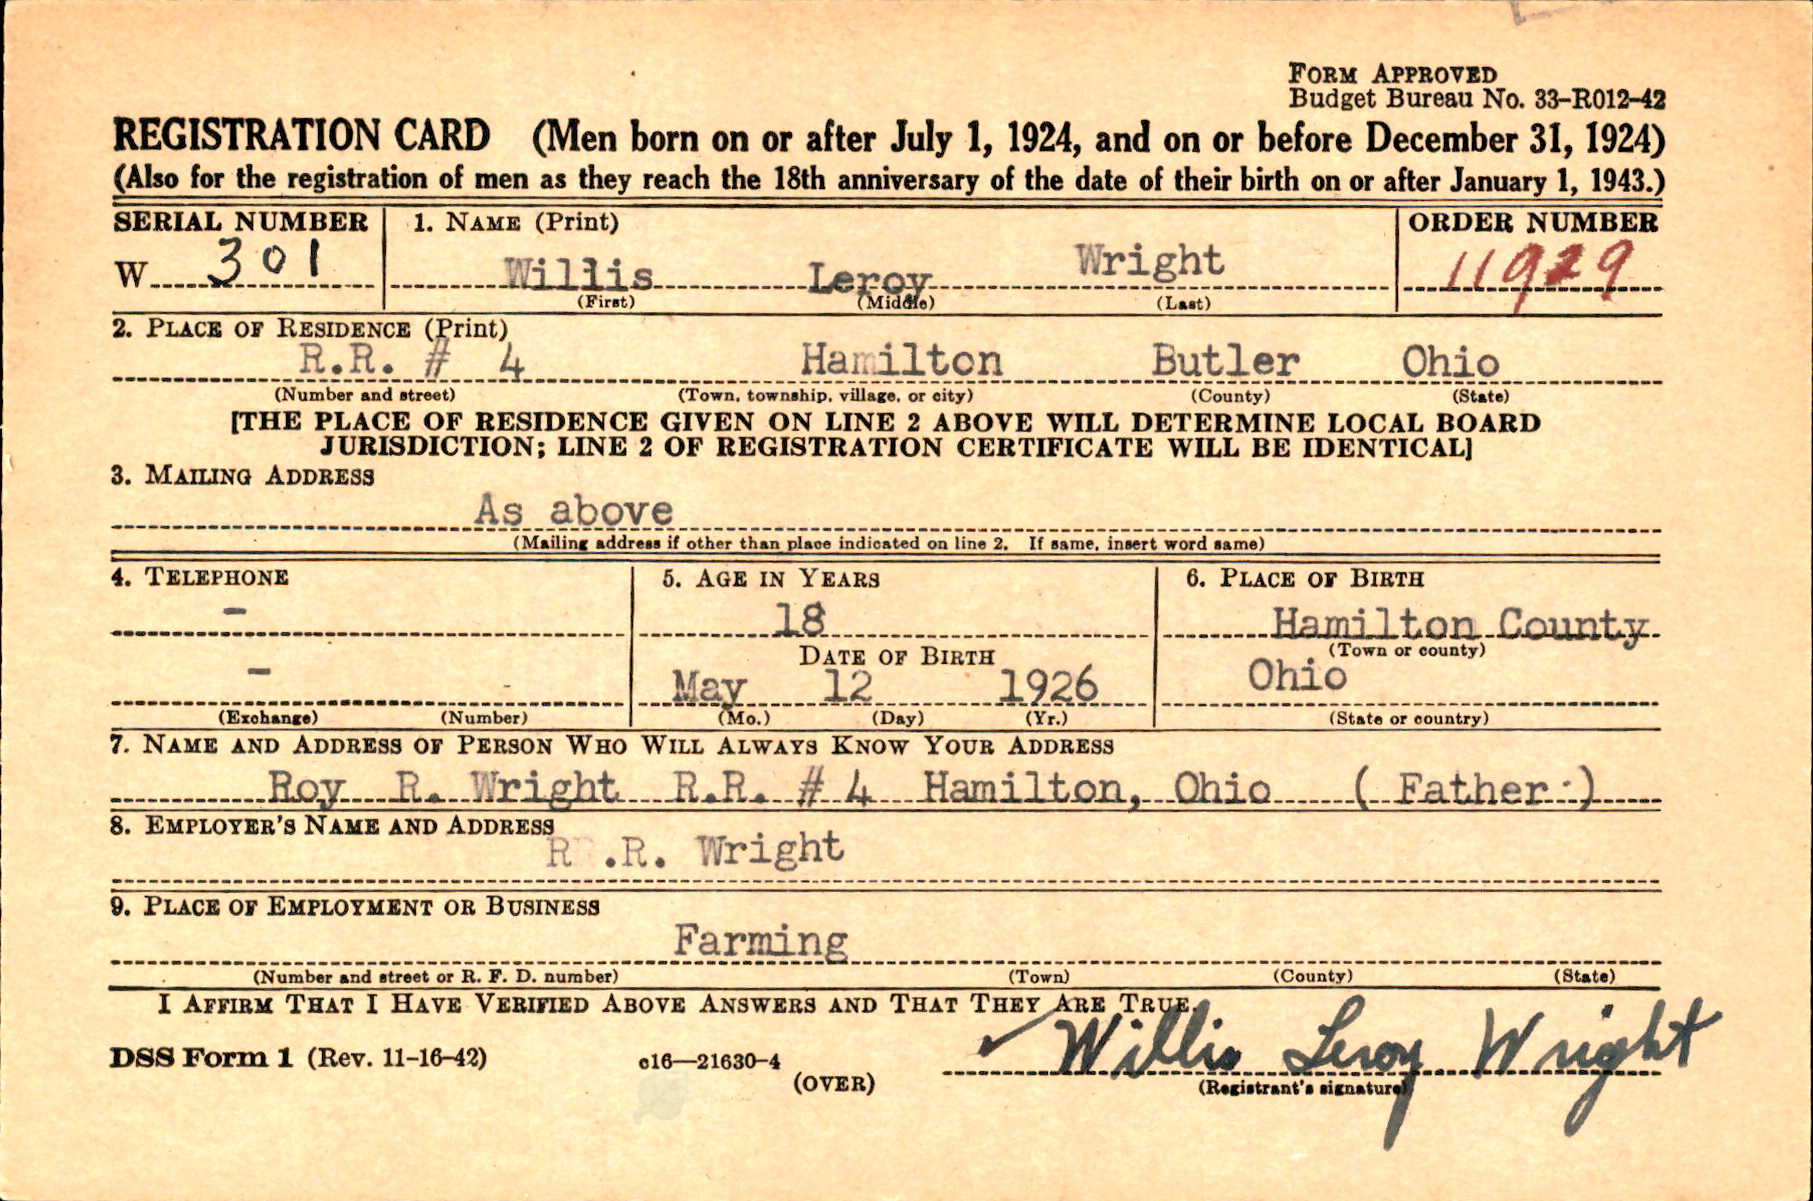 FORM APPROVED
Budget Bureau No. 33-R012-42
REGISTRATION CARD (Men born on or after July 1, 1924, and on or before December 31, 1924)
(Also for the registration of men as they reach the 18th anniversary of the date of their birth on or after January 1, 1943.)
SERIAL NUMBER 1. NAME (Print) ORDER NUMBER
W 301 Willis Leroy Wright 11929
(First) (Middle) (Last)
2. PLACE OF RESIDENCE (Print)
R.R. # 4 Hamilton Butler Ohio
(Number and street) (Town, township, village, or city) (County) (State)
[THE PLACE OF RESIDENCE GIVEN ON LINE 2 ABOVE WILL DETERMINE LOCAL BOARD
JURISDICTION; LINE 2 OF REGISTRATION CERTIFICATE WILL BE IDENTICAL]
3. MAILING ADDRESS
As above
(Mailing address if other than place indicated on line 2. If same, insert word same)
4. TELEPHONE 5. AGE IN YEARS 6. PLACE OF BIRTH
- 18 Hamilton County
DATE OF BIRTH (Town or county)
- May 12 1926 Ohio
(Exchange) (Number) (Mo.) (Day) (Yr.) (State or country)
7. NAME AND ADDRESS OF PERSON WHO WILL ALWAYS KNOW YOUR ADDRESS
Roy R. Wright R.R. # 4 Hamilton, Ohio ( Father )
8. EMPLOYER'S NAME AND ADDRESS
R .R. Wright
9. PLACE OF EMPLOYMENT OR BUSINESS
Farming
(Number and street or R. F. D. number) (Town) (County) (State)
I AFFIRM THAT I HAVE VERIFIED ABOVE ANSWERS AND THAT THEY ARE TRUE.
DSS Form 1 (Rev. 11-16-42) c16—21630-4 Willis Leroy Wright
(OVER) (Registrant's signature)